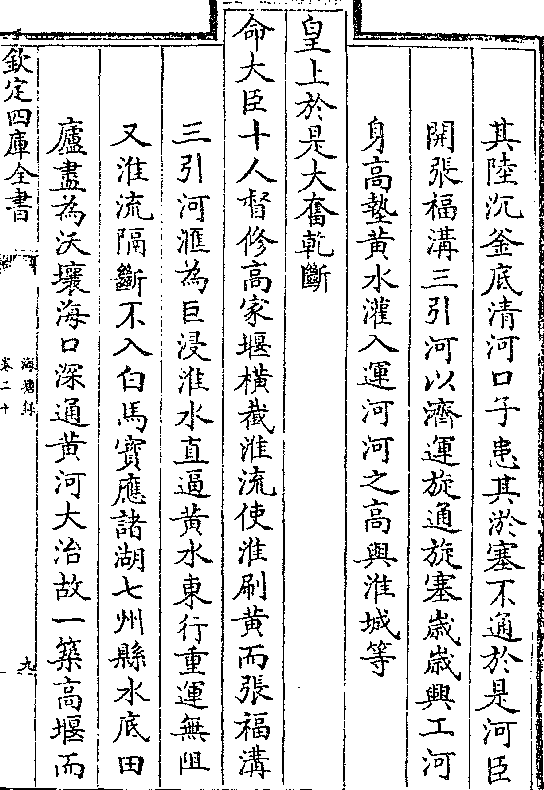 其陸沉釜底清河口子患其淤塞不通於是河臣
開張福溝三引河以濟運旋通旋塞歲歲興工河
身高墊黃水灌入運河河之高與淮城等
皇上於是大奮乾斷
命大臣十人督修高家堰橫截淮流使淮刷黃而張福溝
三引河滙為巨浸淮水直逼黃水東行重運無阻
又淮流隔斷不入白馬寳應諸湖七州縣水底田
廬盡為沃壤海口深通黃河大治故一築高堰而
欽定四庫全書
海塘錄
卷二十
九